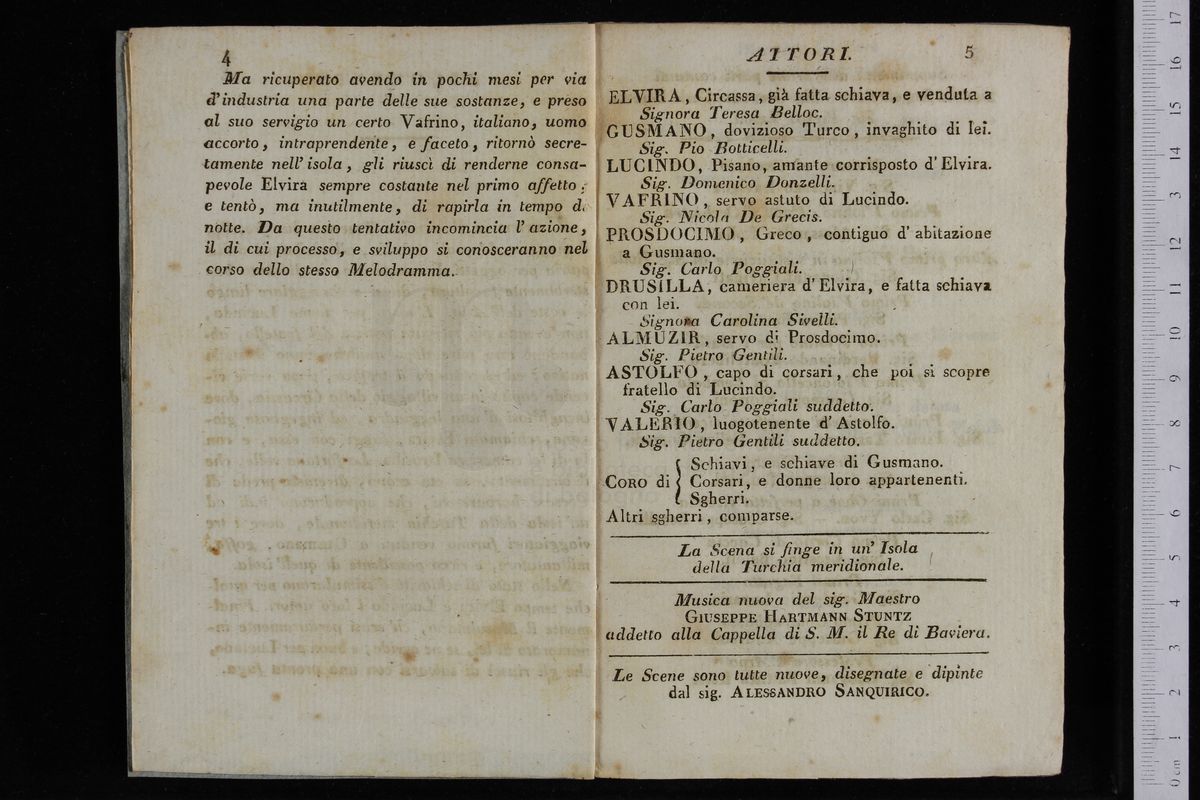 4
Ma ricuperato avendo in pochi mesi per via
d'industria una parte delle sue sostanze, e preso
al suo servigio un certo Vafrino, italiano, uomo
accorto, intraprendente, e faceto, ritornò secre-
tamente nell' isola, gli riuscì di renderne consa-
pevole Elvira sempre costante nel primo affetto;
e tentò, ma inutilmente, di rapirla in tempo di
notte. Da questo tentativo incomincia l' azione,
il di cui processo, e sviluppo si conosceranno nel
corso dello stesso Melodramma.
ATTORI. 5
ELVIRA, Circassa, già fatta schiava, e venduta a
Signora Teresa Belloc.
GUSMANO, dovizioso Turco, invaghito di lei.
Sig. Pio Botticelli.
LUCINDO, Pisano, amante corrisposto d' Elvira.
Sig. Domenico Donzelli.
VAFRINO, servo astuto di Lucindo.
Sig. Nicola De Grecis.
PROSDOCIMO, Greco, contiguo d' abitazione
a Gusmano.
Sig. Carlo Poggiali.
DRUSILLA, cameriera d' Elvira, e fatta schiava
con lei.
Signora Carolina Sivelli.
ALMUZIR, servo di Prosdocimo.
Sig. Pietro Gentili.
ASTOLFO, capo di corsari, che poi si scopre
fratello di Lucindo.
Sig. Carlo Poggiali suddetto.
VALERIO, luogotenente d' Astolfo.
Sig. Pietro Gentili suddetto.
Schiavi, e schiave di Gusmano.
CORO di { Corsari, e donne loro appartenenti.
Sgherri.
Altri sgherri, comparse.
La Scena si finge in un' Isola
della Turchia meridionale.
Musica nuova del sig. Maestro
GIUSEPPE HARTMANN STUNTZ
addetto alla Cappella di S. M. il Re di Baviera.
Le Scene sono tutte nuove, disegnate e dipinte
dal sig. ALESSANDRO SANQUIRICO.
0 cm 1 2 3 4 5 6 7 8 9 10 11 12 13 14 15 16 17